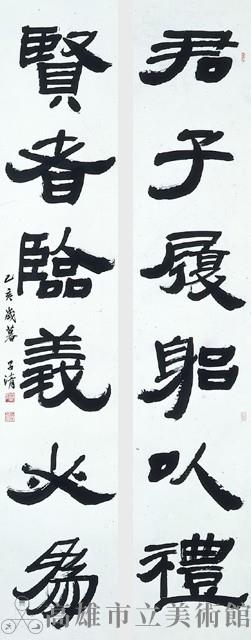 君子履躬以禮
賢者臨義必為
乙亥歲暮 子清
高雄市立美術館